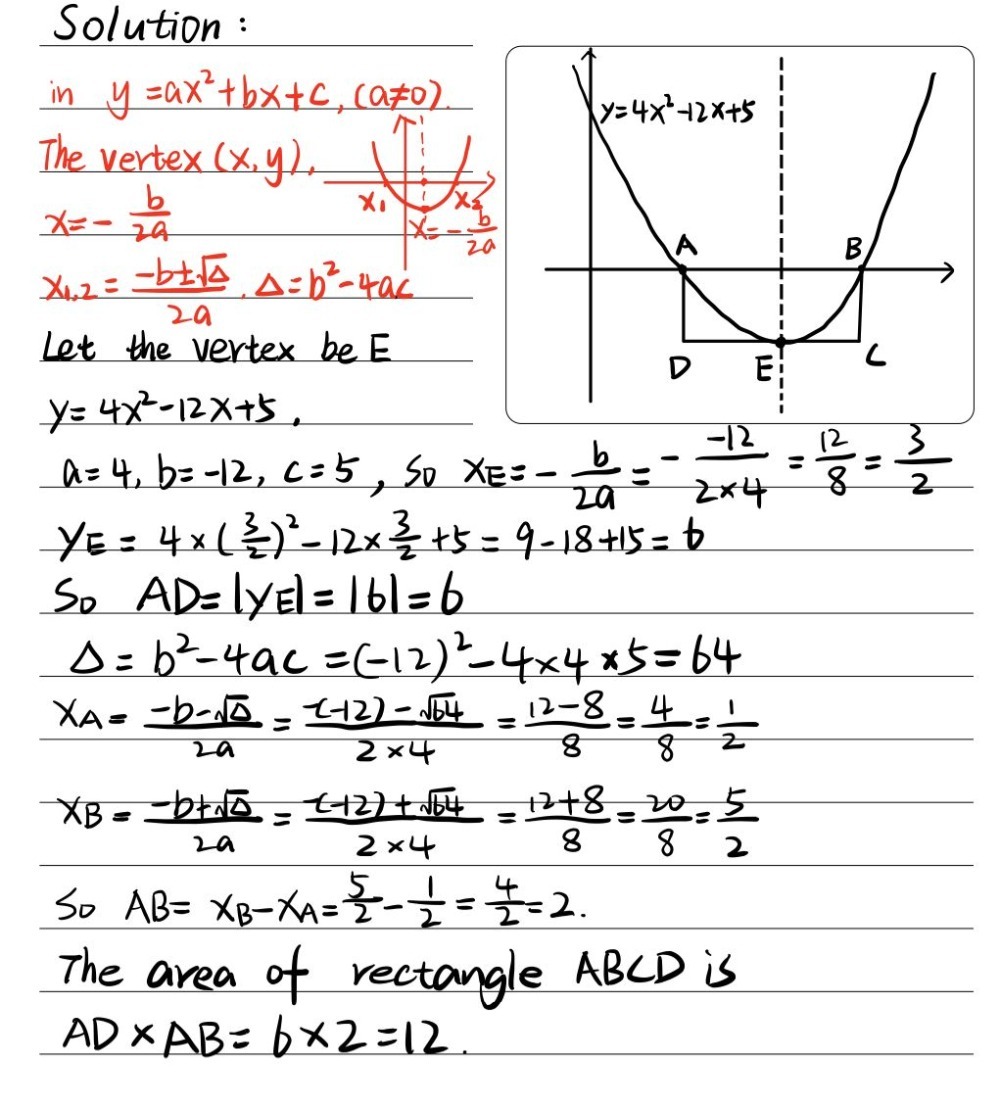 Solution:
in y=ax²+bx+c, (a≠0).
The vertex (x, y),
x=-b/2a
x₁ x₂
x=-b/2a
x₁,₂=(-b±√Δ)/2a, Δ=b²-4ac
y=4x²-12x+5
A B
D E C
Let the vertex be E
y=4x²-12x+5,
a=4, b=-12, c=5, so xE=-b/2a=--12/2×4=12/8=3/2
yE=4×(3/2)²-12×3/2+5=9-18+15=6
So AD=|yE|=|6|=6
Δ=b²-4ac=(-12)²-4×4×5=64
xA=(-b-√Δ)/2a=(-(-12)-√64)/2×4=(12-8)/8=4/8=1/2
xB=(-b+√Δ)/2a=(-(-12)+√64)/2×4=(12+8)/8=20/8=5/2
So AB=xB-xA=5/2-1/2=4/2=2.
The area of rectangle ABCD is
AD×AB=6×2=12.